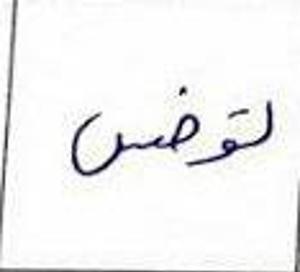 لتوضس